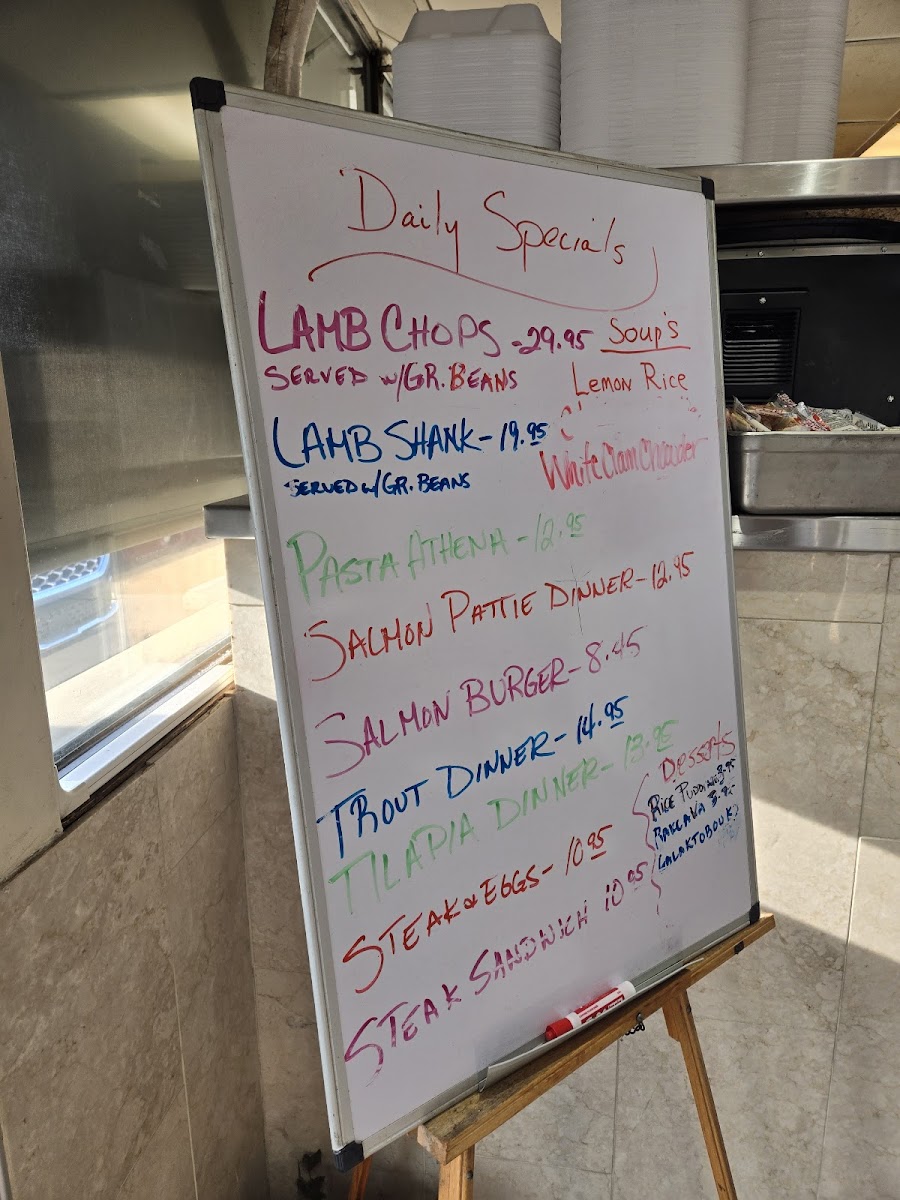 Daily Specials
LAMB CHOPS - 29.95
SERVED W/GR. BEANS
Soup's
Lemon Rice
White Clam Chowder
LAMB SHANK - 19.95
SERVED W/GR. BEANS
PASTA ATHENA - 12.95
SALMON PATTIE DINNER - 12.95
SALMON BURGER - 8.45
TROUT DINNER - 14.95
TILAPIA DINNER - 13.95
STEAK & EGGS - 10.95
STEAK SANDWICH 10.95
Desserts
RICE PUDDING 3.95
BAKLAVA
GALAKTOBOUK